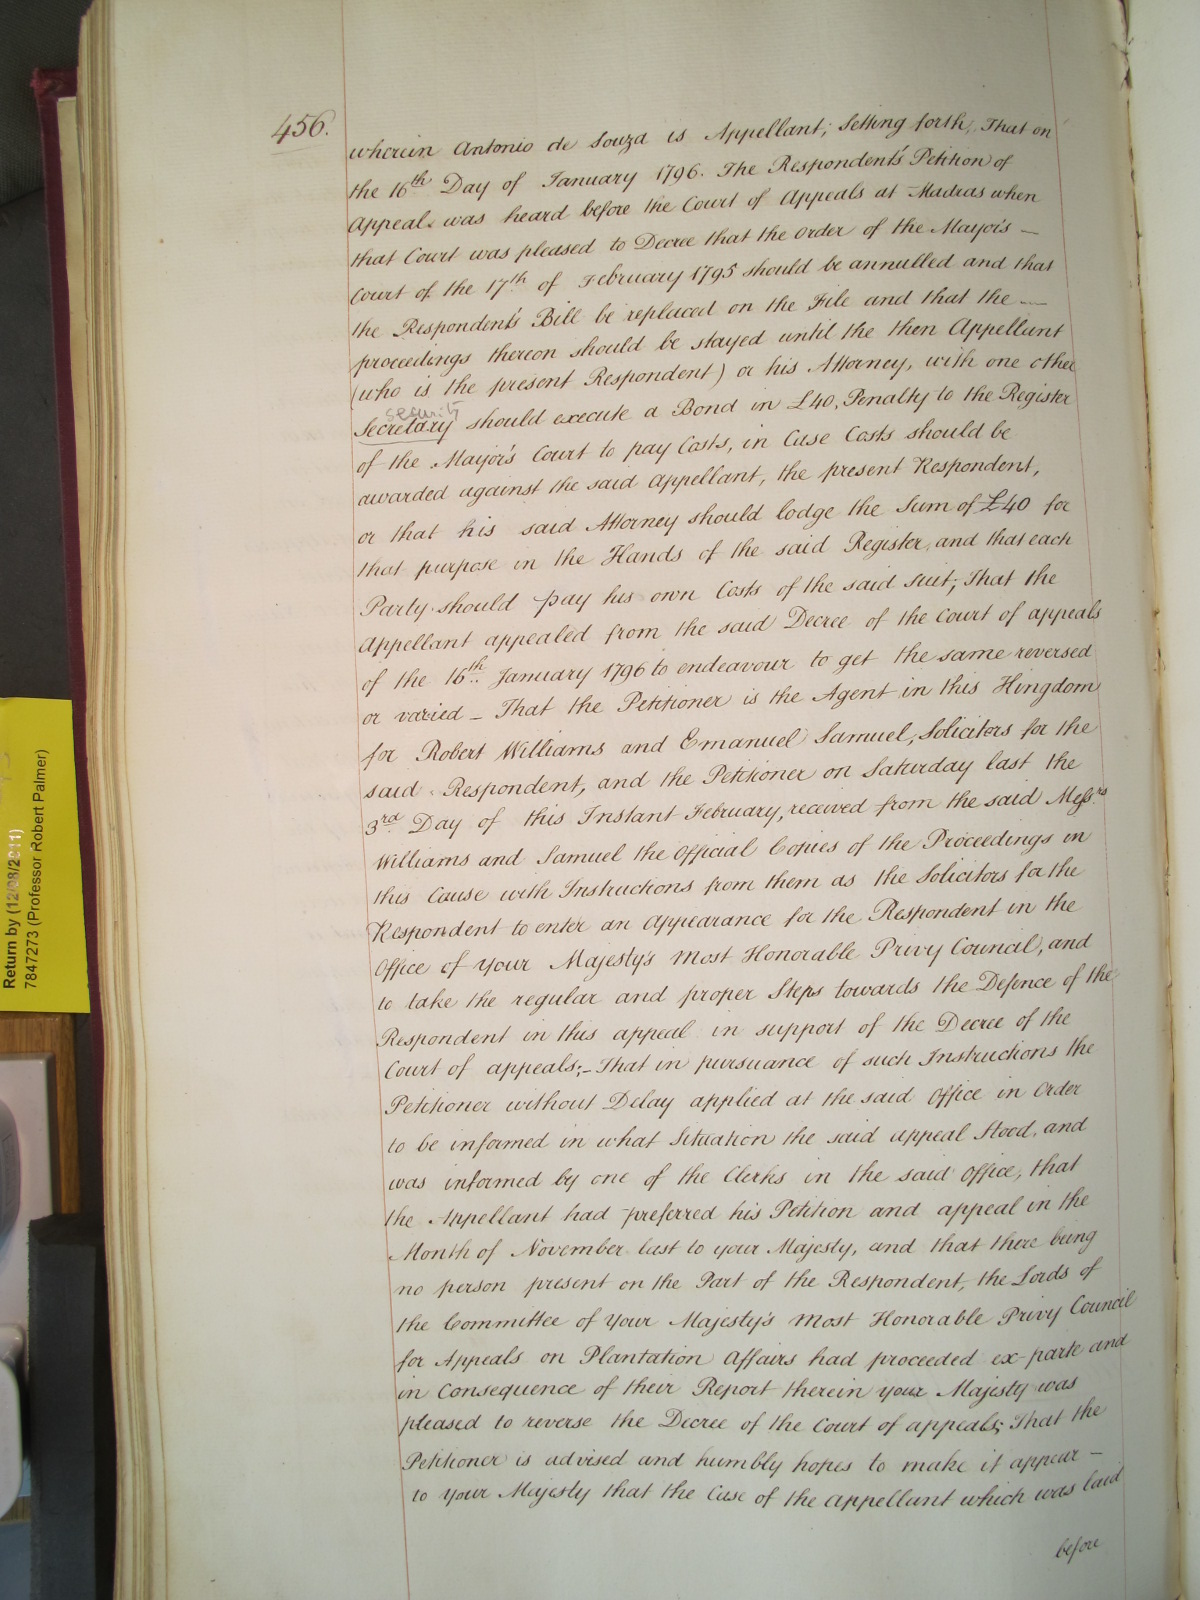 456.
wherein Antonio de Souza is Appellant; Setting forth, That on
the 16th Day of January 1796. The Respondent's Petition of
Appeal was heard before the Court of Appeals at Madras when
that Court was pleased to Decree that the Order of the Mayor's —
Court of the 17th of February 1795 should be annulled and that
the Respondent's Bill be replaced on the File and that the —
proceedings thereon should be stayed until the then Appellant
(who is the present Respondent) or his Attorney, with one other
security
Secretary should execute a Bond in £40, Penalty to the Register
of the Mayor's Court to pay Costs, in Case Costs should be
awarded against the said Appellant, the present Respondent,
or that his said Attorney should lodge the Sum of £40 for
that purpose in the Hands of the said Register, and that each
Party should pay his own Costs of the said suit; That the
Appellant appealed from the said Decree of the Court of appeals
of the 16th January 1796 to endeavour to get the same reversed
or varied — That the Petitioner is the Agent in this Kingdom
for Robert Williams and Emanuel Samuel, Solicitors for the
said Respondent, and the Petitioner on Saturday last the
3rd Day of this Instant February, received from the said Messrs
Williams and Samuel the Official Copies of the Proceedings in
this Cause with Instructions from them as the Solicitors for the
Respondent to enter an Appearance for the Respondent in the
Office of Your Majesty's most Honorable Privy Council, and
to take the regular and proper Steps towards the Defence of the
Respondent in this appeal in support of the Decree of the
Court of appeals; — That in pursuance of such Instructions the
Petitioner without Delay applied at the said Office in Order
to be informed in what Situation the said appeal Stood, and
was informed by one of the Clerks in the said Office, that
the Appellant had preferred his Petition and appeal in the
Month of November last to your Majesty, and that there being
no person present on the Part of the Respondent, the Lords of
the Committee of Your Majesty's most Honorable Privy Council
for Appeals on Plantation Affairs had proceeded ex-parte and
in Consequence of their Report therein your Majesty was
pleased to reverse the Decree of the Court of appeals; That the
Petitioner is advised and humbly hopes to make it appear —
to your Majesty that the Case of the Appellant which was laid
before
Return by (12/08/2011)
7847273 (Professor Robert Palmer)